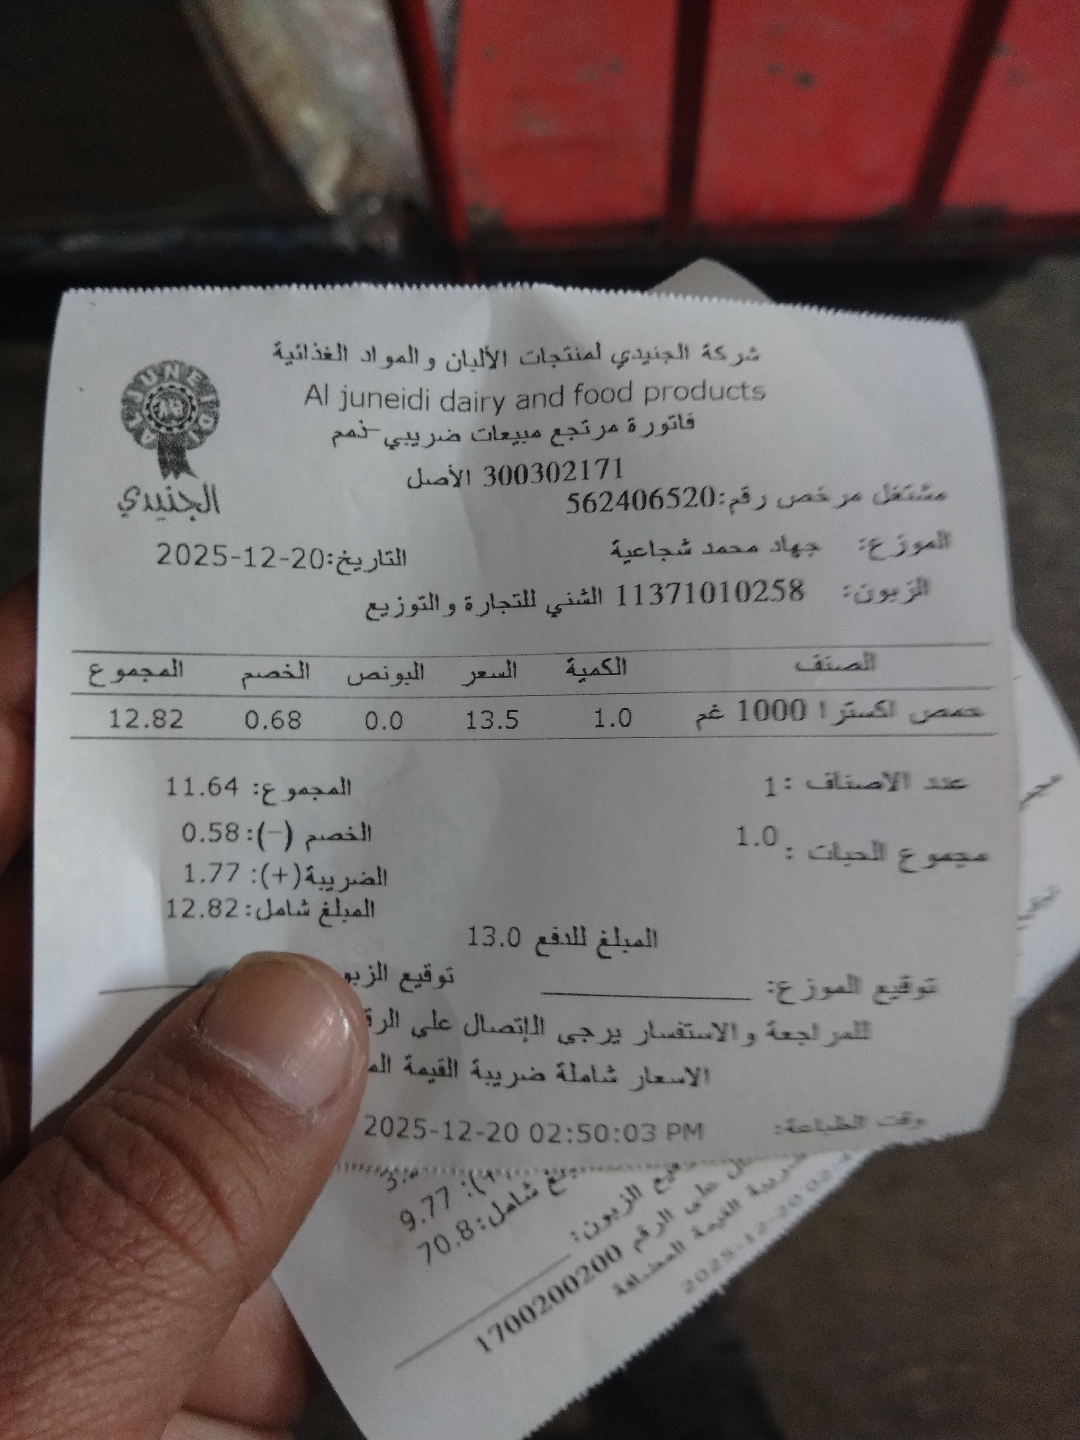 شركة الجنيدي لمنتجات الألبان والمواد الغذائية
Al juneidi dairy and food products
AL JUNEIDI
الجنيدي
فاتورة مرتجع مبيعات ضريبي-ذمم
300302171 الأصل
مشتغل مرخص رقم:562406520
الموزع: جهاد محمد شجاعية التاريخ:2025-12-20
الزبون: 11371010258 الشني للتجارة والتوزيع
الصنف الكمية السعر البونص الخصم المجموع
حمص اكسترا 1000 غم 1.0 13.5 0.0 0.68 12.82
عدد الاصناف :1 المجموع: 11.64
مجموع الحبات : 1.0 الخصم (-):0.58
الضريبة(+): 1.77
المبلغ شامل:12.82
المبلغ للدفع 13.0
توقيع الموزع: توقيع
للمراجعة والاستفسار يرجى الإتصال على
الاسعار شاملة ضريبة القيمة
وقت الطباعة: 2025-12-20 02:50:03 PM
9.77
شامل:70.8
توقيع الزبون:
على الرقم 1700200200
ضريبة القيمة المضافة
2025-12-20